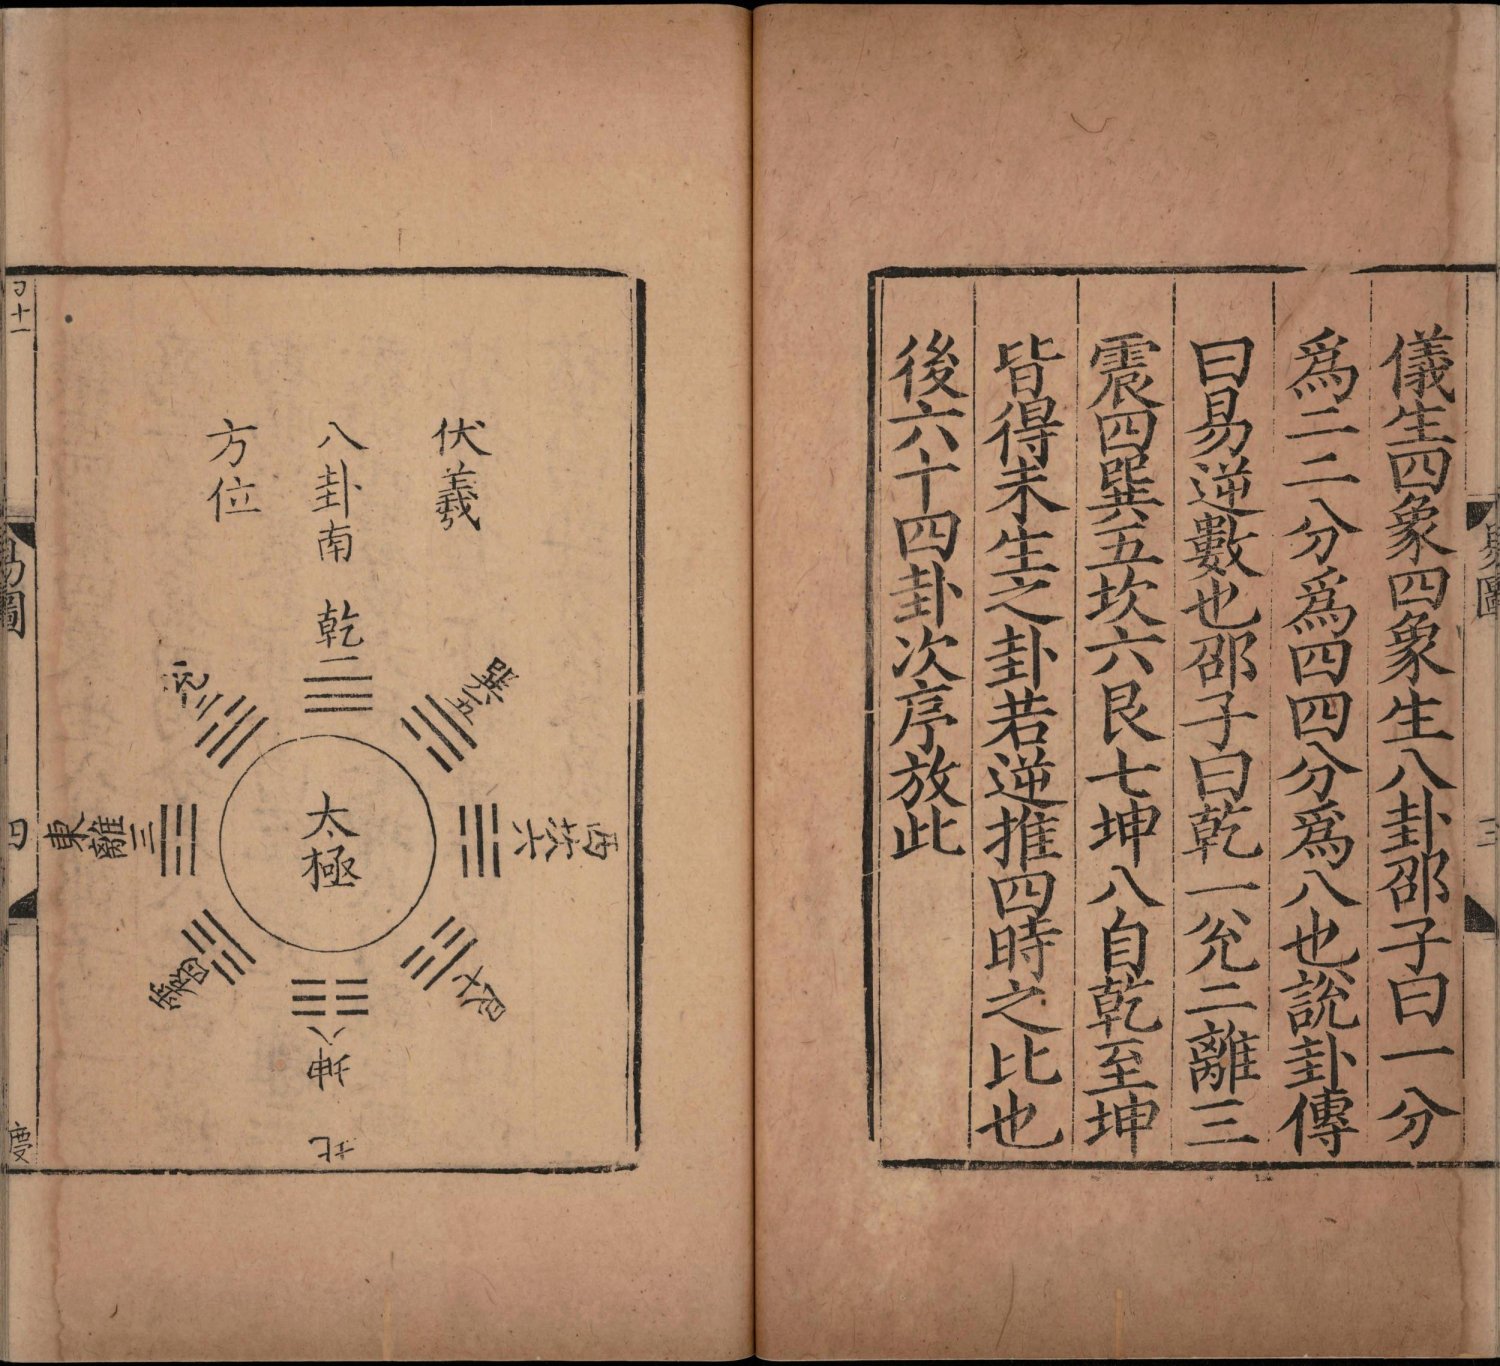 儀生四象四象生八卦邵子曰一分
爲二二分爲四四分爲八也說卦傳
曰易逆數也邵子曰乾一兊二離三
震四巽五坎六艮七坤八自乾至坤
皆得未生之卦若逆推四時之比也
後六十四卦次序放此
易圖
三
伏羲
八卦
方位
南
乾一
兊二
離三
東
震四
巽五
坎六
西
艮七
八坤
北
太極
易圖
四
慶